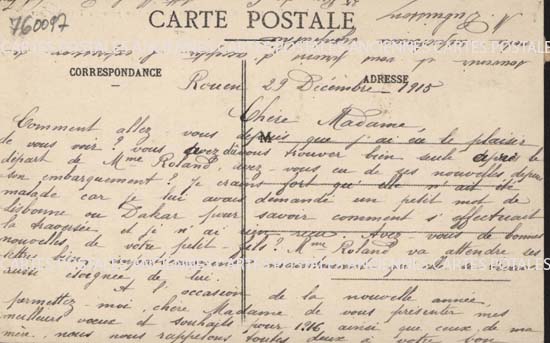 760097
CARTE POSTALE
CORRESPONDANCE
ADRESSE
Rouen 29 Décembre 1915
Chère Madame,
Comment allez-vous depuis que j'ai eu le plaisir
de vous voir? vous devez vous trouver bien seule après le
départ de Mme Roland, avez-vous eu de ses nouvelles depuis
son embarquement? Je crains fort qu'elle n'ait été
malade car je lui avais demandé un petit mot de
Lisbonne ou Dakar pour savoir comment s'effectuait
la traversée et je n'ai rien reçu. Avez vous de bonnes
nouvelles de votre petit-fils? Mme Roland va attendre ses
lettres bien
aussi éloignée de lui.
A l'occasion de la nouvelle année
permettez-moi, chère Madame de vous présenter mes
meilleurs vœux et souhaits pour 1916 ainsi que ceux de ma
mère, nous nous rappelons toutes deux à votre bon